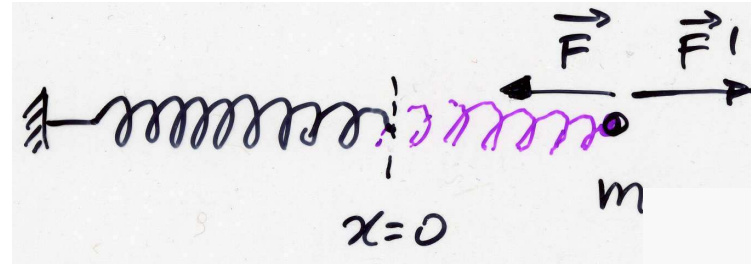 F⃗ F⃗ '
m
x=0